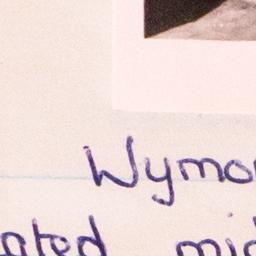 Wymo
ated mid